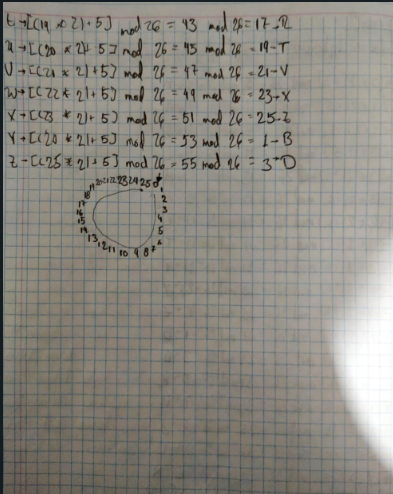 t→[(19 * 2)+5] mod 26 = 43 mod 26 = 17-R
u→[(20 * 2)+5] mod 26 = 45 mod 26 = 19-T
V→[(21 * 2)+5] mod 26 = 47 mod 26 = 21-V
W→[(22 * 2)+5] mod 26 = 49 mod 26 = 23-X
X→[(23 * 2)+5] mod 26 = 51 mod 26 = 25-Z
Y→[(24 * 2)+5] mod 26 = 53 mod 26 = 1-B
Z→[(25 * 2)+5] mod 26 = 55 mod 26 = 3-D
0 1 2 3 4 5 6 7 8 9 10 11 12 13 14 15 16 17 18 19 20 21 22 23 24 25